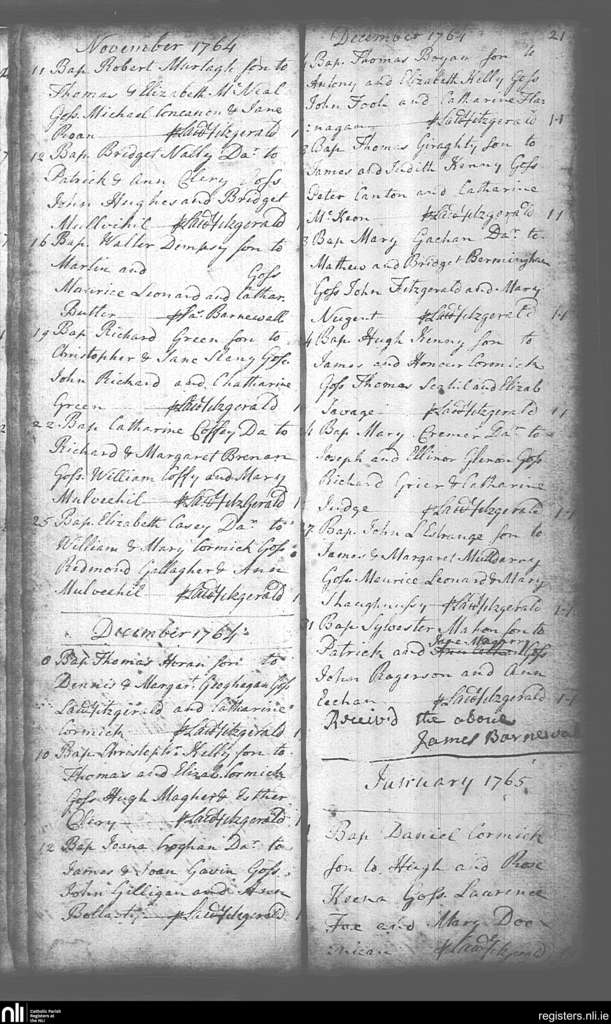 November 1764
11 Bap. Robert Murtagh son to
Thomas & Elizabeth McNeal
Goss. Michael Concanon & Jane
Roan p Lawce fitzgerald 1
12 Bap. Bridget Nally Dar. to
Patrick & Ann Clery Goss
John Hughes and Bridget
Mullvihil p Lawce fitzgerald 1
16 Bap. Walter Dempsy son to
Martin and Goss
Maurice Leonard and Cathar.
Butler p Ja. Barnewall
19 Bap. Richard Green son to
Christopher & Jane Goss.
John Richard and Chatharine
Green p Lawce fitzgerald 1
22 Bap. Catharine Coffey Da to
Richard & Margaret Brenan
Goss. William Coffy and Mary
Mulvechil p Lawce fitzGerald 1
25 Bap. Elizabeth Casey Dar. to
William & Mary Cormick Goss
Redmond Gallagher & Ann
Mulvechil p Lawce fitzgerald 1
December 1764
Bap. Thomas Horan son to
Dennis & Margart. Geoghegan Goss
Lawce fitzgerald and Catharine
Cormick p Lawce fitzgerald 1
10 Bap. Christophr. Kelly son to
Thomas and Elizab. Cormick
Goss. Hugh Magher & Esther
Clery p Lawce fitzgerald 1
12 Bap. Joana Croghan Dar. to
James & Joan Gavin Goss.
John Gilligan and Ann
p Lawce fitzgerald 1
December 1764 21
Bap. Thomas Bryan son to
Antony and Elizabeth Kelly Goss
John Fook and Catharine Fla
nagan p Lawce fitzgerald 1-1
Bap. Thomas Giraghty son to
James and Judith Kenny Goss
Peter Canton and Catharine
McKeon p Lawce fitzgerald 1 1
Bap. Mary Gachan Dar. to
Mathew and Bridget Bermingham
Goss John Fitzgerald and Mary
Nugent p Lawce fitzgerald 1-1
Bap. Hugh Kenny son to
James and Honour Cormick
Goss Thomas and Elizab
Savage p Lawce fitzgerald 1 1
Bap. Mary Cremer Dar. to
Joseph and Ellinor Goss
Richard Grier & Catharine
Judge p Lawce fitzgerald 1-1
Bap. John L'Estrange son to
James & Margaret Mullarny
Goss Maurice Leonard & Mary
Shaughnussy p Lawce fitzgerald 1-1
Bap. Sylvester Mahon son to
Jane
Patrick and Goss
John Rogerson and Ann
Eechan p Lawce fitzgerald 1-1
Received the above
James Barnewall
January 1765
Bap. Daniel Cormick
son to Hugh and Rose
Keena Goss. Laurence
Fox and Mary Doo
nican p Lawce fitzgerald
nli
Catholic Parish
Registers at
the NLI
registers.nli.ie